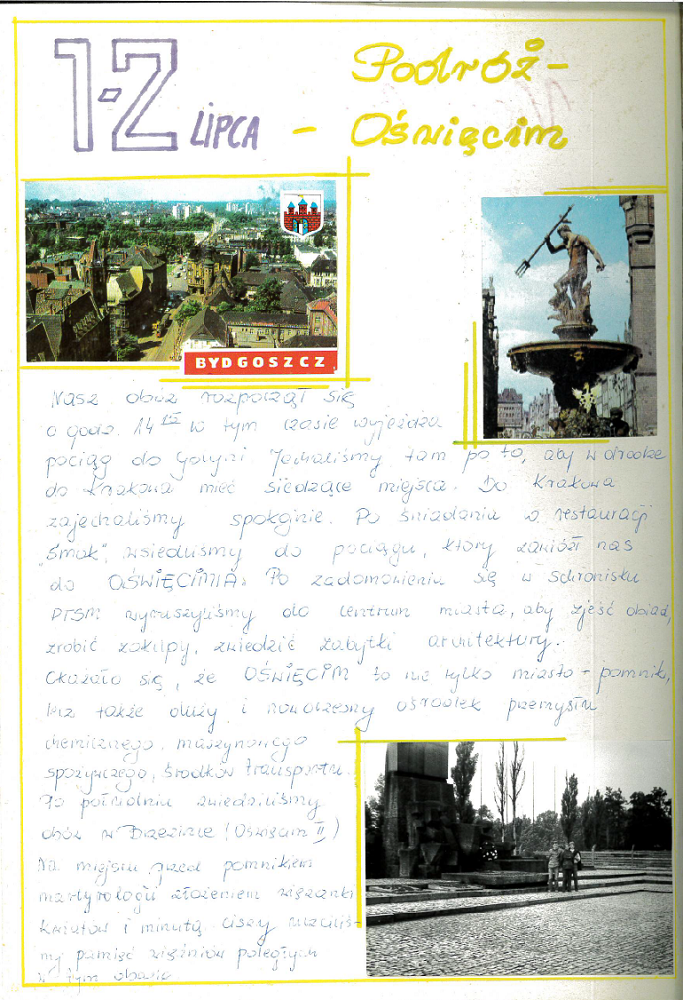 1-2 LIPCA - Podróż -
Oświęcim
BYDGOSZCZ
Nasz obóz rozpoczął się
o godz. 14 w tym czasie wyjeżdża
pociąg do Gdyni Jechaliśmy tam po to, aby w drodze
do Krakowa mieć siedzące miejsca. Do Krakowa
zajechaliśmy spokojnie. Po śniadaniu w restauracji
"Smok", wsiedliśmy do pociągu, który zawiózł nas
do OŚWIĘCIMIA. Po zadomowieniu się w schronisku
PTSM wyruszyliśmy do centrum miasta, aby zjeść obiad,
zrobić zakupy, zwiedzić zabytki architektury.
Okazało się, że OŚWIĘCIM to nie tylko miasto - pomnik,
lecz także duży i nowoczesny ośrodek przemysłu
chemicznego, maszynowego
spożywczego, środków transportu.
Po południu zwiedziliśmy
obóz w Brzezince (Oświęcim II)
Na miejscu przed pomnikiem
martyrologii złożeniem wiązanki
kwiatów i minutą ciszy uczciliś-
my pamięć więźniów poległych
w tym obozie